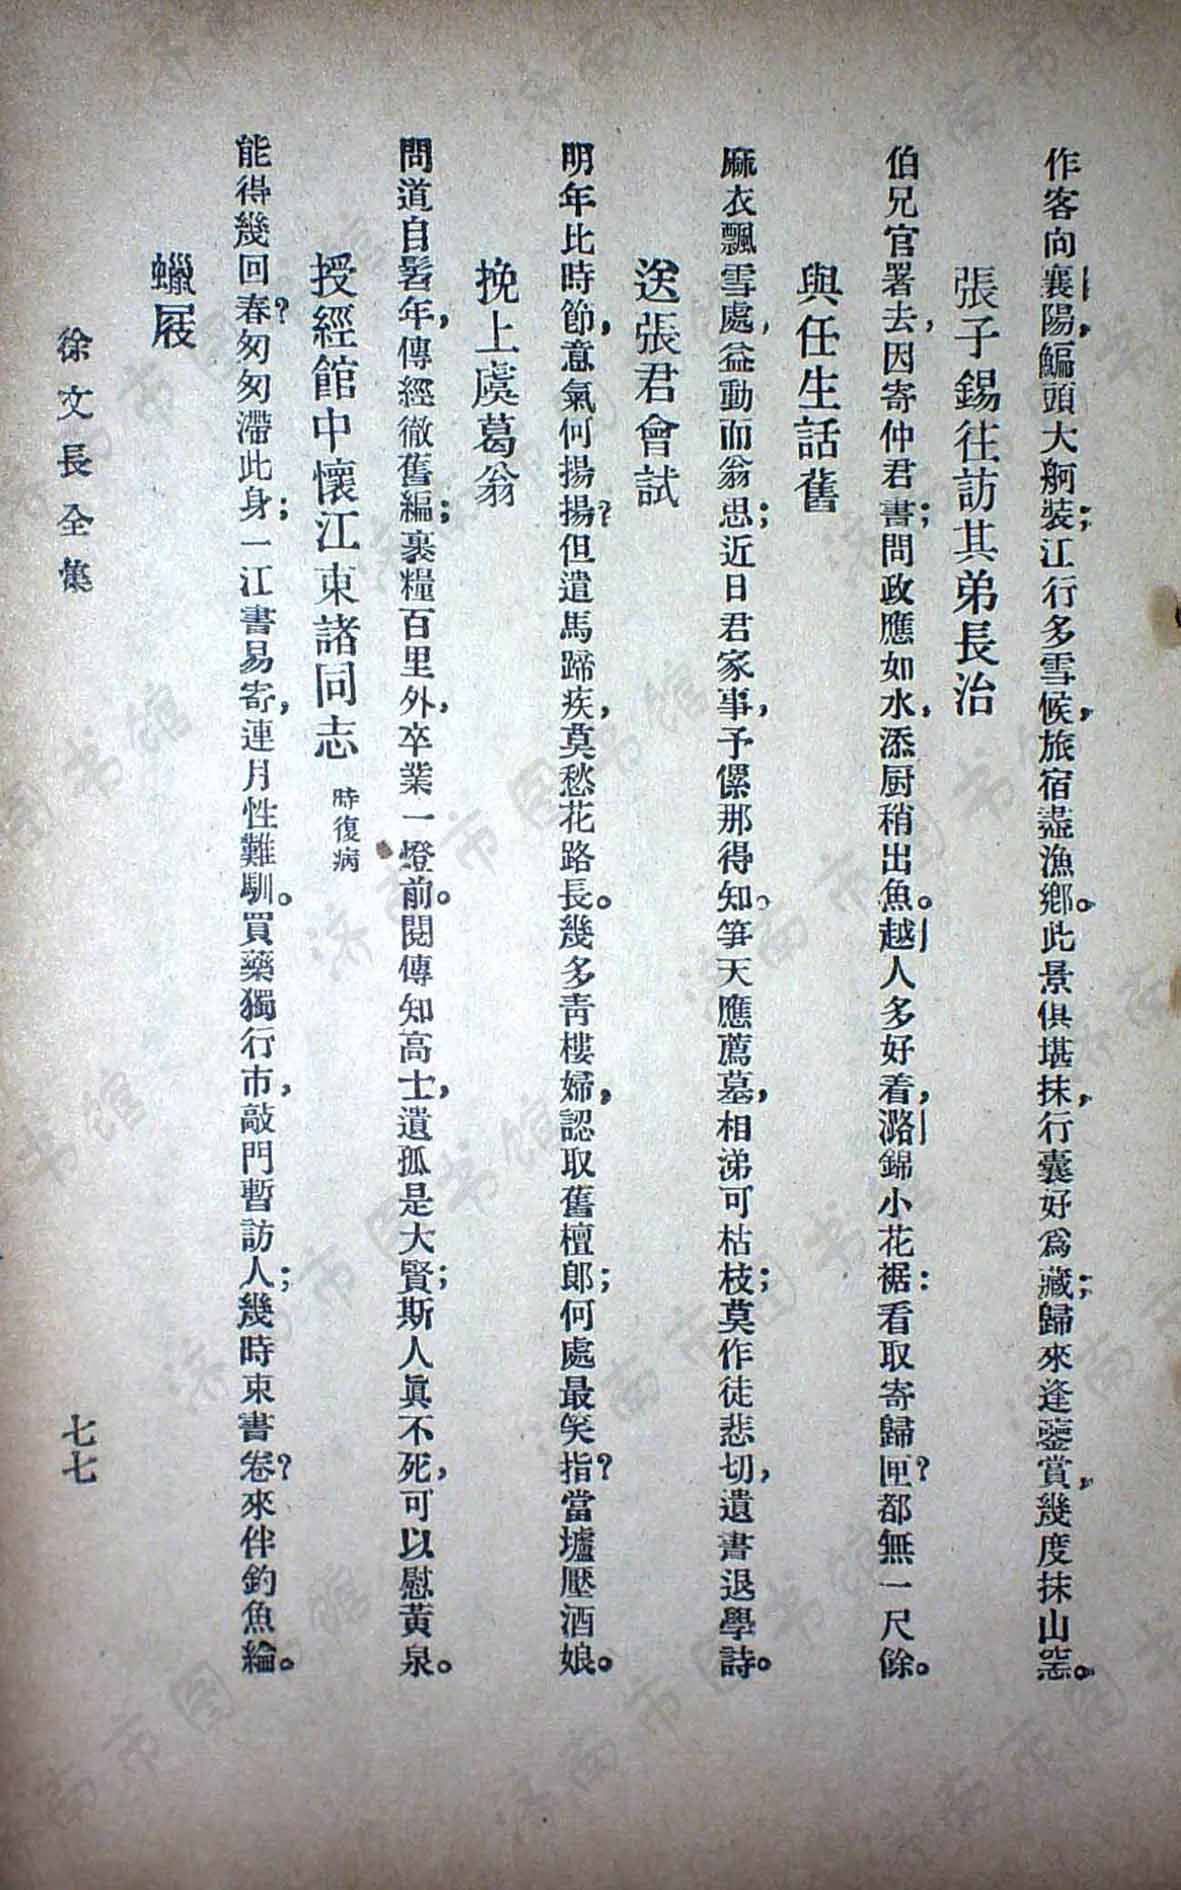 作客向襄陽，鯿頭大舸裝；江行多雪候，旅宿盡漁鄉。此景俱堪抹，行囊好爲藏；歸來逢鑒賞，幾度抹山窑。
張子錫往訪其弟長治
伯兄官署去，因寄仲君書；問政應如水，添厨稍出魚。越人多好着，潞錦小花裾：看取寄歸匣？都無一尺餘。
與任生話舊
麻衣飄雪處，益動而翁思；近日君家事，予傫那得知。笋天應薦墓，相涕可枯枝；莫作徒悲切，遺書退學詩。
送張君會試
明年比時節，意氣何揚揚？但遣馬蹄疾，莫愁花路長。幾多靑樓婦，認取舊檀郎；何處最笑指？當壚壓酒娘。
挽上虞葛翁
問道自髫年，傳經徹舊編；裹糧百里外，卒業一燈前。閱傳知高士，遺孤是大賢；斯人眞不死，可以慰黃泉。
授經館中懷江東諸同志 時復病
能得幾回春？匆匆滯此身；一江書易寄，連月性難馴。買藥獨行市，敲門暫訪人；幾時束書卷？來伴釣魚綸。
蠟屐
徐文長全集
七七